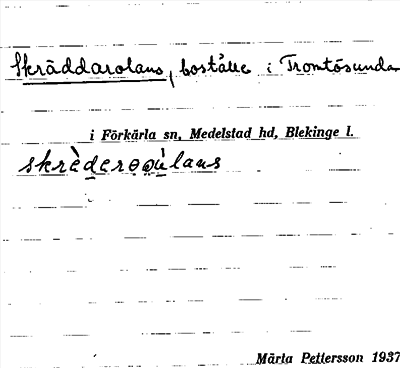 Skräddarolans, boställe i Tromtösunda
i Förkärla sn, Medelstad hd, Blekinge l.
skrèderoọùlans
Märta Pettersson 1937